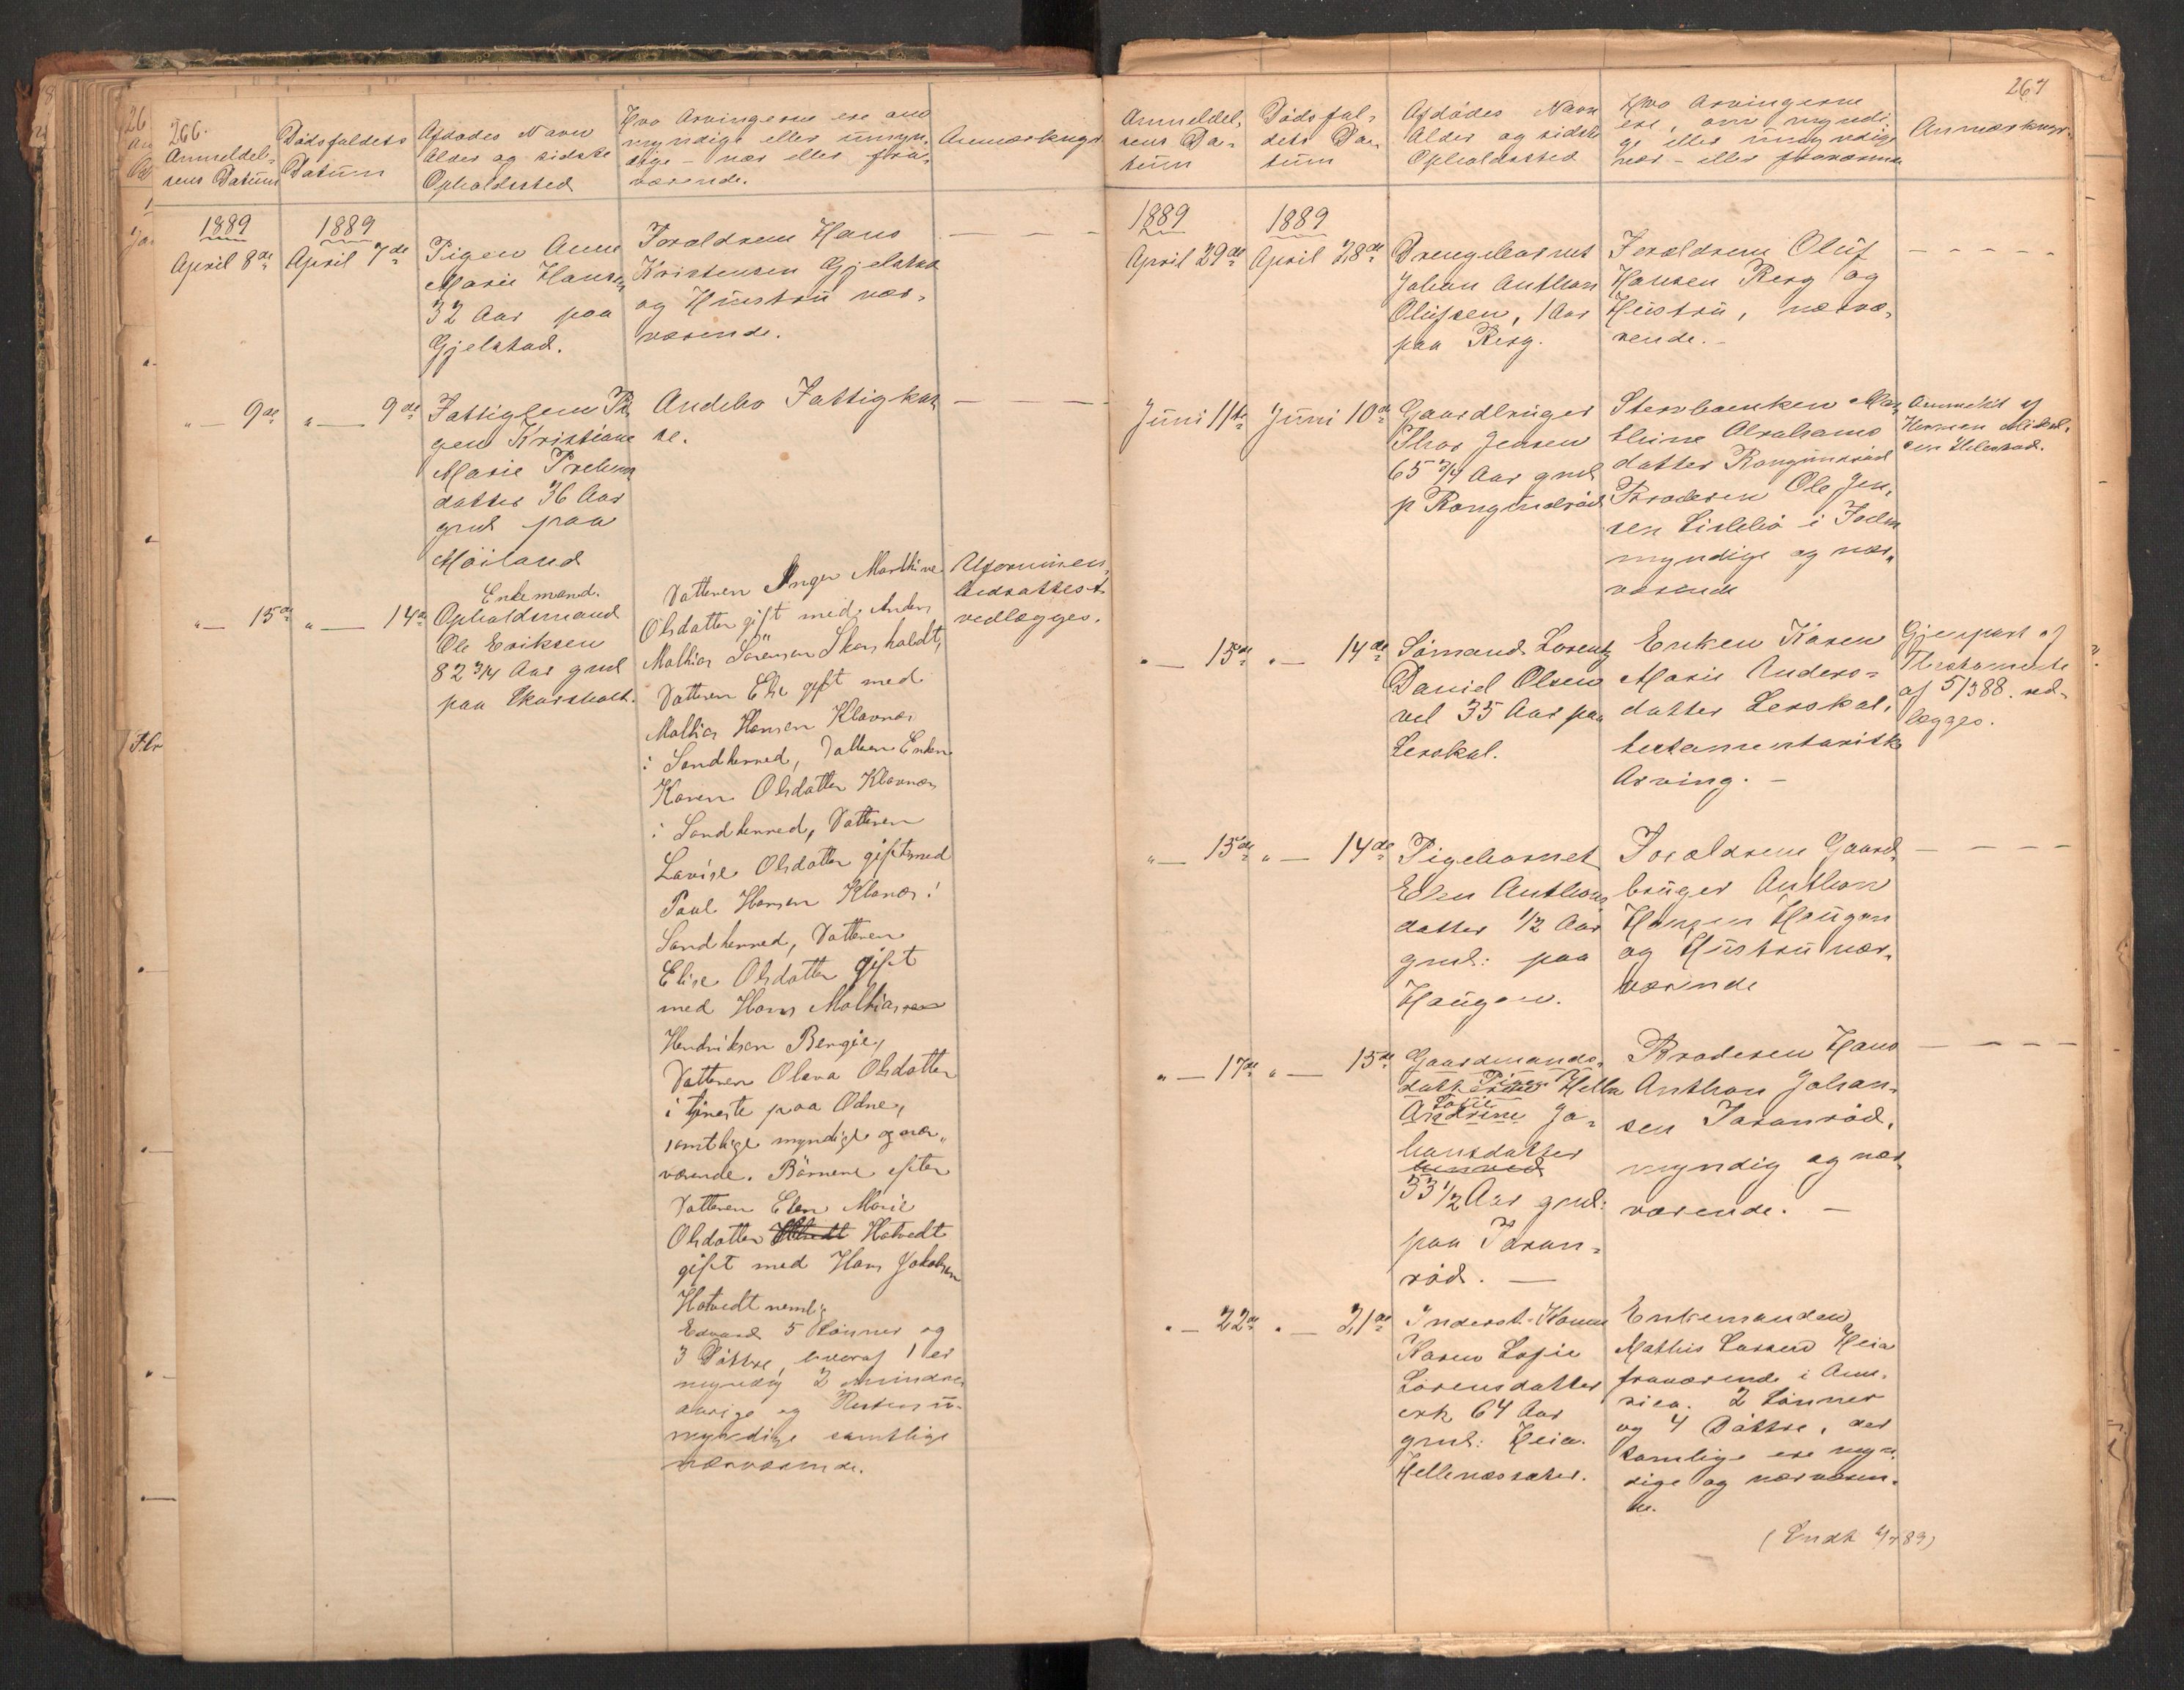 266.
Anmeldel-
sens Datum
Dødsfaldets
Datum
Afdødes Navn
Alder og sidste
Opholdssted
Hvo Arvingerne ere om
myndige eller umyn-
dige - nær eller fra-
værende.
Anmærkngr
1889
April 8de
1889
April 7de
Pigen Anne
Marie Hansen
32 Aar paa
Gjelstad.
Forældrene Hans
Kristensen Gjelstad
og Hustru nær-
værende.
" — 9de
" — 9de
Fattiglem Pi-
gen Kristiane
Marie
datter 36 Aar
gml paa
Møiland
Andebo Fattigkas-
se.
" — 15de
" — 14de
Enkemand.
Opholdsmand
Ole Eriksen
82 3/4 Aar gml
paa Skarsholt.
Datteren Inger Marthine
Olsdatter gift med Anders
Mathias Sørensen Skarsholdt,
Datteren Else gift med
Mathias Hansen Klavnæs
i Sandherred, Datteren Enken
Karen Olsdatter Klavnæs
i Sandherred, Datteren
Lovise Olsdatter gift med
Paul Hansen Klavnæs i
Sandherred, Datteren
Elise Olsdatter gift
med Hans Mathias
Hendriksen Bergje,
Datteren Olava Olsdatter
i tjeneste paa Ødne,
samtlige myndige og nær-
værende. Børnene efter
Datteren Elen Marie
Olsdatter Hotvedt
gift med Hans Jakobsen
Hotvedt neml:
Edvard 5 Sønner og
3 Døttre, hvoraf 1 er
myndig 2 mindre
aarige og Resten u-
myndige samtlige
nærværende.
Uformuen-
hedsattest
vedlægges.
267
Anmeldel-
sens Da-
tum
Dødsfal-
dets Da-
tum
Afdødes Navn
Alder og sidste
Opholdssted
Hvo Arvingerne
ere, om myndi-
ge eller umyndige
nær - eller fraværende
Anmærkngr.
1889
April 29de
1889
April 28de
Drengebarnet
Johan Anthon
Olufsen, 1 Aar
paa Berg.
Forældrene Oluf
Hansen Berg og
Hustru, nærvæ-
rende. -
Juni 11te
Juni 10de
Gaardbruger
Thor Jensen
65 3/4 Aar gml
p
Mar-
thine Abrahams-
datter
Broderen Ole Jen-
sen i
myndige og nær-
værende
Anmeldt af
Herman
" — 15de
" — 14de
Sømand Lorentz
Daniel Olsen
ved 35 Aar paa
Lerskal.
Enken Karen
Marie Anders-
datter Lerskal,
testamentarisk
Arving. -
Gjenpart af
Thestamente
af 5/3 88. ved-
lægges.
" — 15de
" — 14de
Pigebarnet
Elen Anthons-
datter 1/2 Aar
gml: paa
Haugen.
Forældrene Gaard-
bruger Anthon
Hansen Haugen
og Hustru nær-
værende
" — 17de
" — 15de
Gaardmands-
datter Pigen Helle
Sofie
Andrine Jo-
hansdatter
53 1/2 Aar gml:
paa Taran-
rød. —
Broderen Hans
Anthon Johan-
sen Taranrød,
myndig og nær-
værende. -
" — 22de
" — 21de
Inderst-Konen
Karen Sofie
Sørensdatter
64 Aar
gml: Heia.
Enkemanden
Mathis Larsen Heia
fraværende i Ame-
rica. 2 Sønner
og 4 Døttre, der
samlige ere myn-
dige og nærværen-
de.
(Sendt 4/7 89)